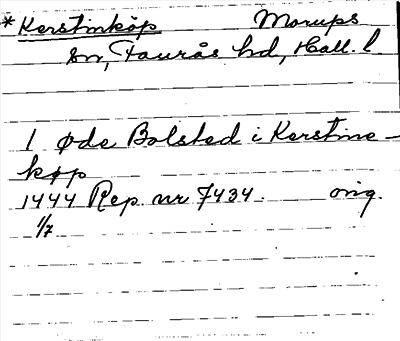 *Kerstinköp Morups
sn, Faurås hd, Hall. l.
1 øde Bolsted i Kerstine-
køp
1444 Rep. nr 7434. orig.
1/7